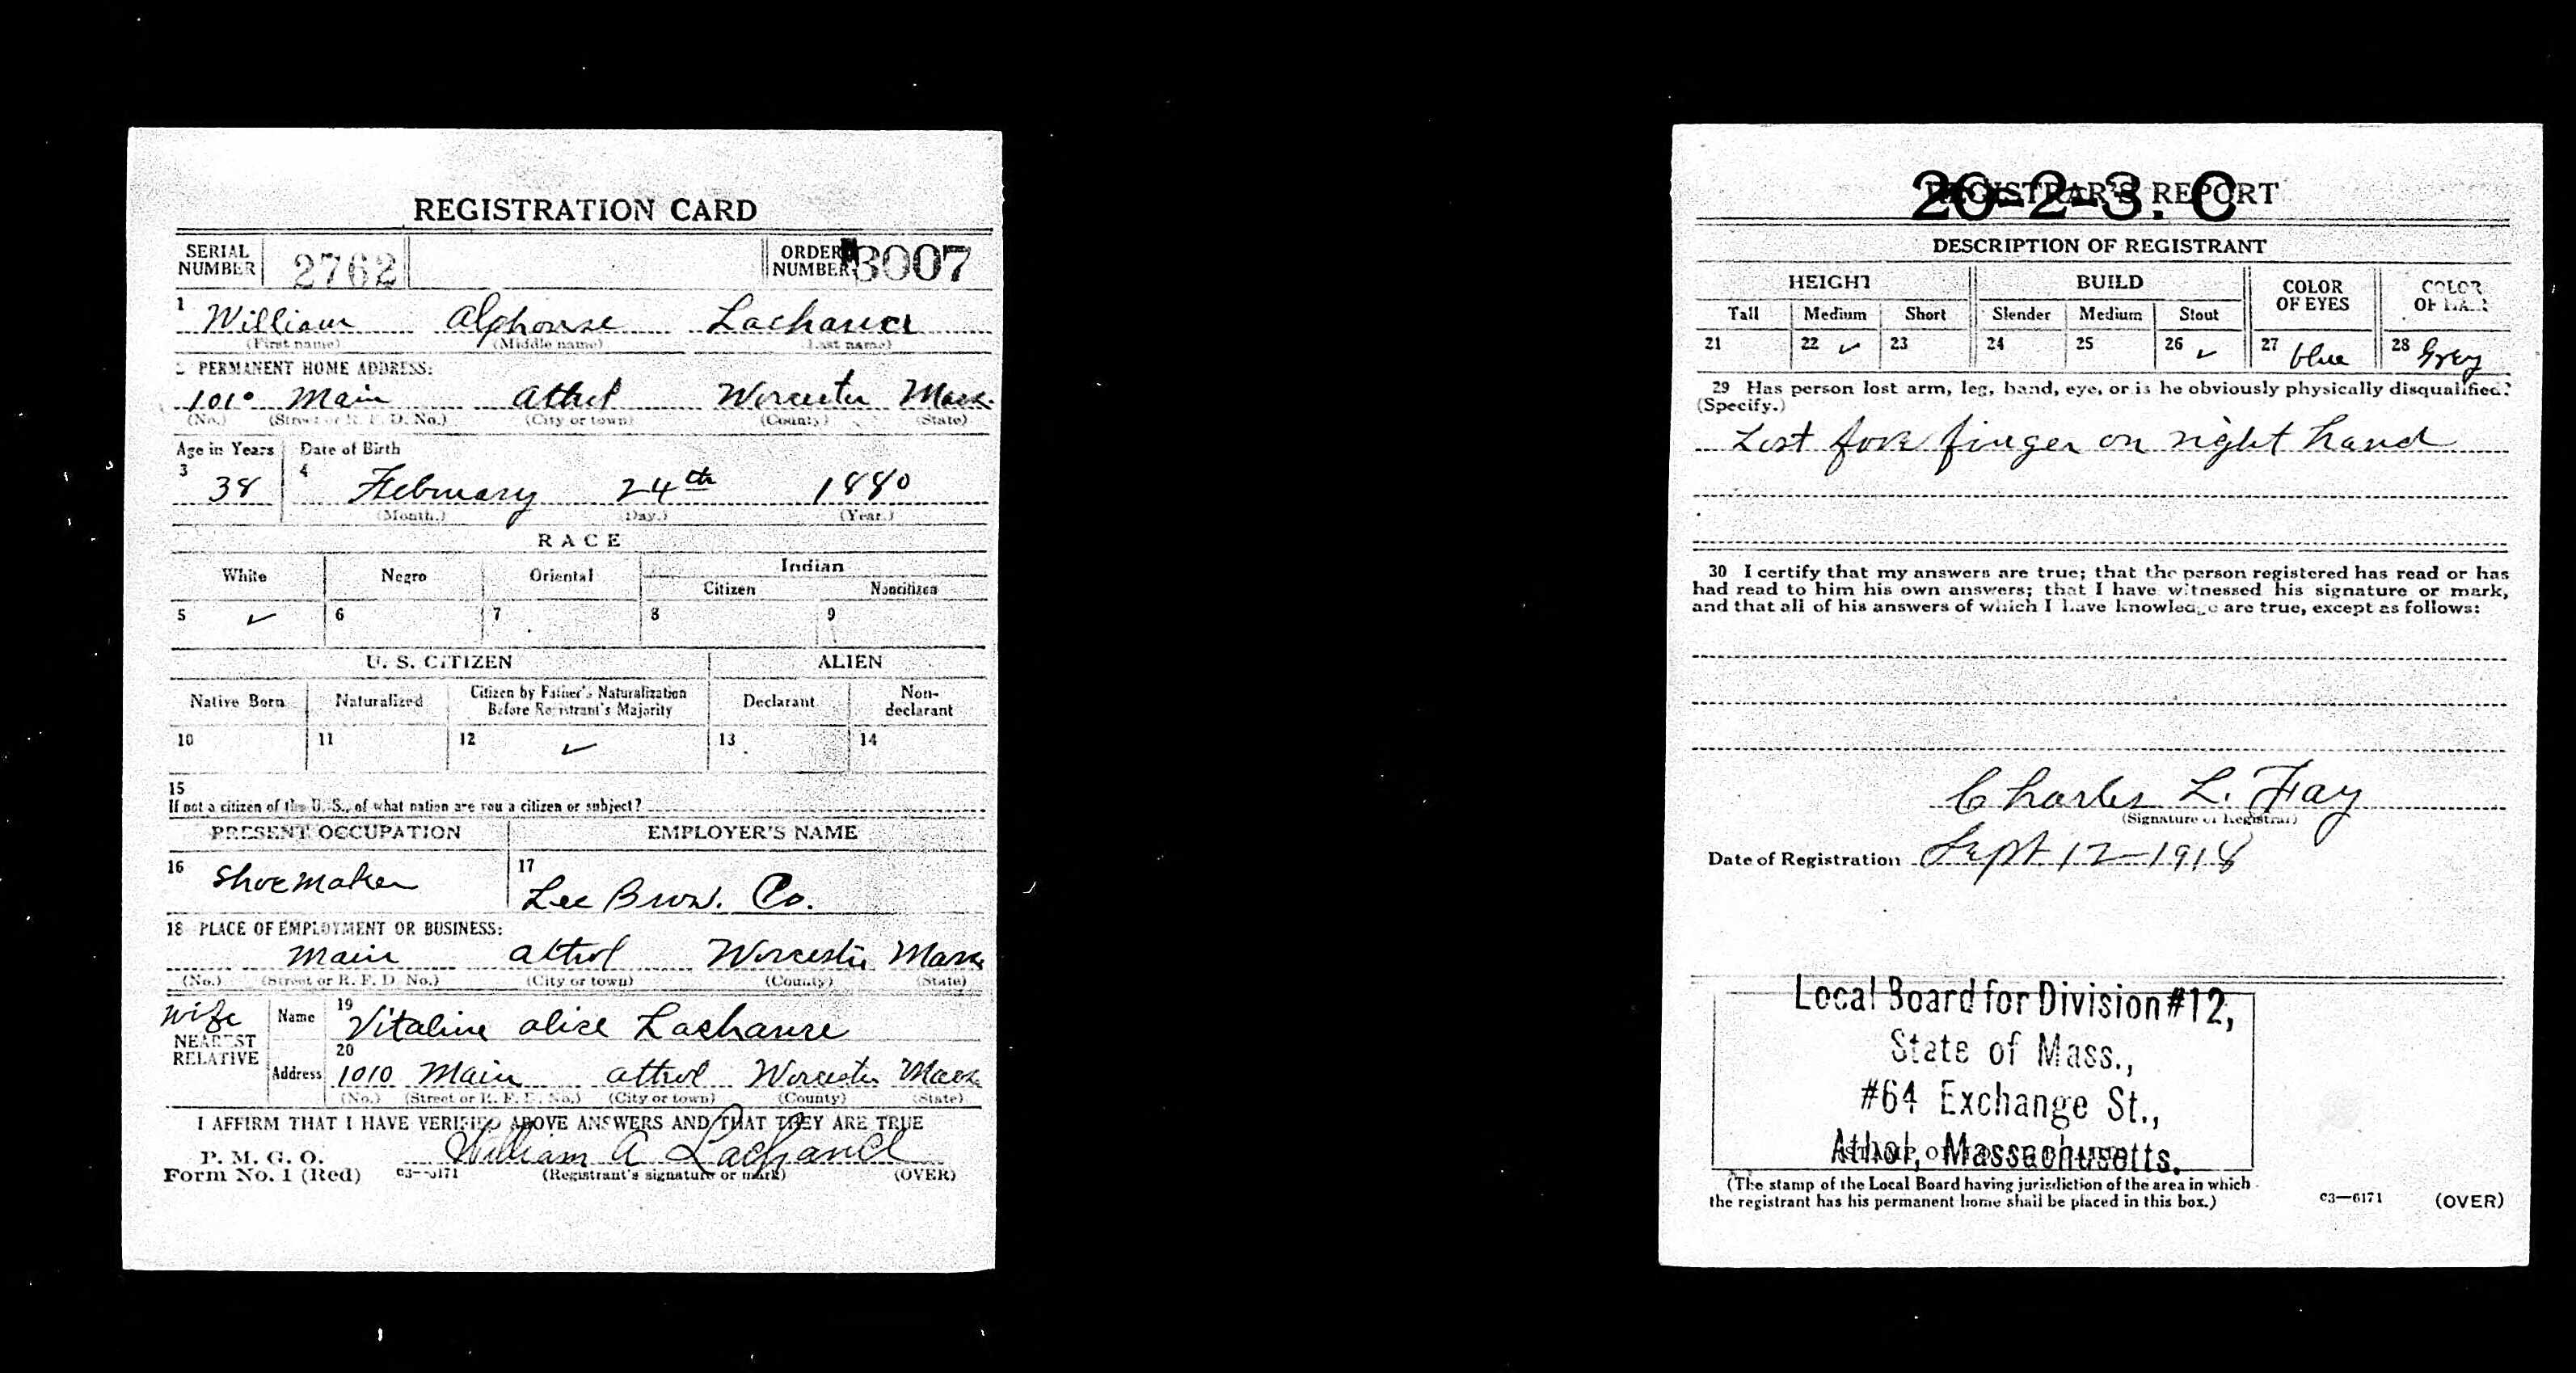 REGISTRATION CARD
SERIAL NUMBER 2762 ORDER NUMBER 3007
1 William Alphonse Lachance
(First name) (Middle name) (Last name)
2 PERMANENT HOME ADDRESS:
1010 Main Athol Worcester Mass.
(No.) (Street or R. F. D. No.) (City or town) (County) (State)
Age in Years Date of Birth
3 38 4 February 24th 1880
(Month.) (Day.) (Year.)
RACE
White Negro Oriental Indian
Citizen Noncitizen
5 ✓ 6 7 8 9
U. S. CITIZEN ALIEN
Native Born Naturalized Citizen by Father's Naturalization Before Registrant's Majority Declarant Non-declarant
10 11 12 ✓ 13 14
15
If not a citizen of the U. S., of what nation are you a citizen or subject?
PRESENT OCCUPATION EMPLOYER'S NAME
16 Shoemaker 17 Lee Bros. Co.
18 PLACE OF EMPLOYMENT OR BUSINESS:
Main Athol Worcester Mass
(No.) (Street or R. F. D. No.) (City or town) (County) (State)
Wife
NEAREST RELATIVE
Name 19 Vitaline Alice Lachance
Address 20 1010 Main Athol Worcester Mass
(No.) (Street or R. F. D. No.) (City or town) (County) (State)
I AFFIRM THAT I HAVE VERIFIED ABOVE ANSWERS AND THAT THEY ARE TRUE
P. M. G. O.
Form No. 1 (Red) c3-6171 William A Lachance
(Registrant's signature or mark) (OVER)
REGISTRAR'S REPORT
20-2-3. C
DESCRIPTION OF REGISTRANT
HEIGHT BUILD COLOR OF EYES COLOR OF HAIR
Tall Medium Short Slender Medium Stout
21 22 ✓ 23 24 25 26 ✓ 27 blue 28 Grey
29 Has person lost arm, leg, hand, eye, or is he obviously physically disqualified?
(Specify.)
Lost fore finger on right hand
30 I certify that my answers are true; that the person registered has read or has
had read to him his own answers; that I have witnessed his signature or mark,
and that all of his answers of which I have knowledge are true, except as follows:
Charles L. Fay
(Signature of Registrar)
Date of Registration Sept 12-1918
Local Board for Division #12,
State of Mass.,
#64 Exchange St.,
Athol, Massachusetts.
(The stamp of the Local Board having jurisdiction of the area in which
the registrant has his permanent home shall be placed in this box.)
c3-6171 (OVER)